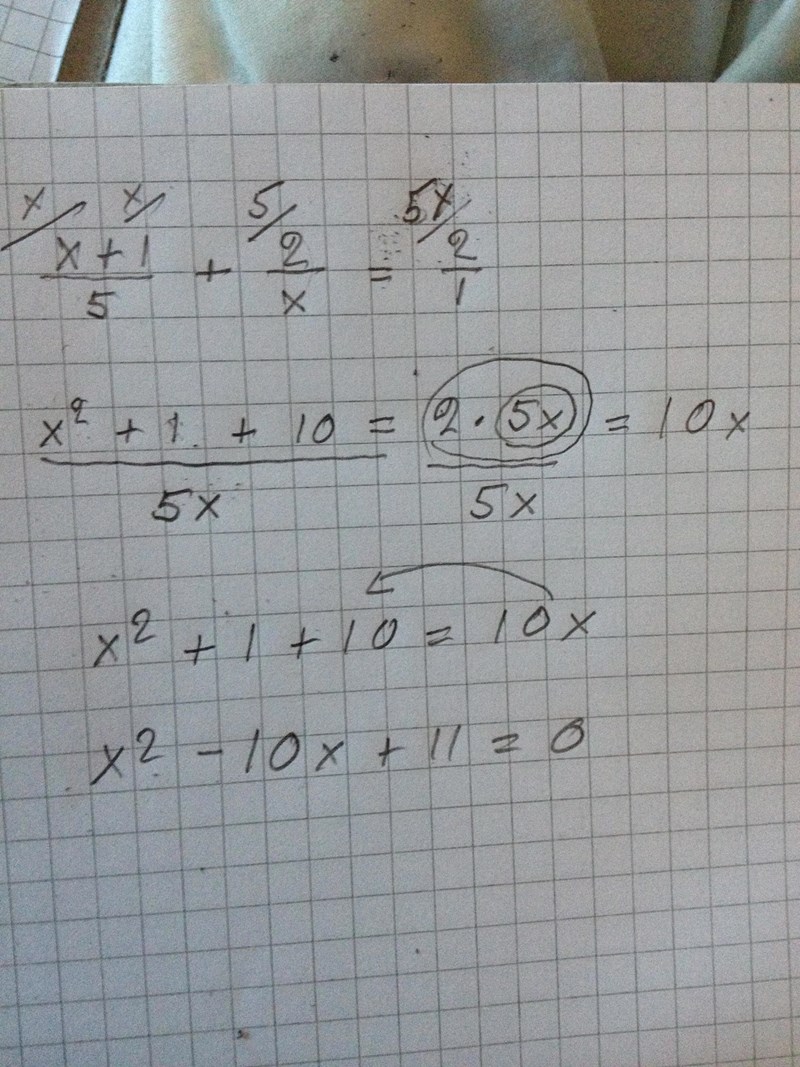 x/ x/ 5/ 5x/
x + 1 + 2 = 2
5 x 1
x² + 1 + 10 = 2 · 5x = 10x
5x 5x
x² + 1 + 10 = 10x
x² - 10x + 11 = 0